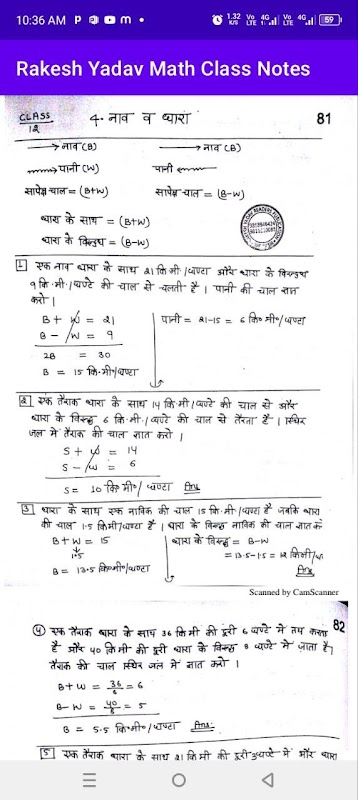 10:36 AM P
1.32 K/S Vo LTE 4G Vo LTE 4G 59
Rakesh Yadav Math Class Notes
CLASS 12
4. नाव व धारा
81
नाव (B)
नाव (B)
पानी (W)
पानी
सापेक्ष चाल = (B+W)
सापेक्ष चाल = (B-W)
धारा के साथ = (B+W)
धारा के विरुध = (B-W)
1 एक नाव धारा के साथ 21 कि.मी./घण्टा और धारा के विरुध
9 कि.मी./घण्टे की चाल से चलती है। पानी की चाल ज्ञात
करो।
B + W = 21
पानी = 21-15 = 6 कि॰मी॰/घण्टा
B - W = 9
2B = 30
B = 15 कि.मी॰/घण्टा
2 एक तैराक धारा के साथ 14 कि.मी./घण्टे की चाल से और
धारा के विरुद्ध 6 कि.मी./घण्टे की चाल से तैरता है। स्थिर
जल में तैराक की चाल ज्ञात करो।
S + W = 14
S - W = 6
S = 10 कि॰मी॰/घण्टा Ans
3 धारा के साथ एक नाविक की चाल 15 कि.मी./घण्टा है जबकि धारा
की चाल 1.5 किमी/घण्टा है। धारा के विरुद्ध नाविक की चाल ज्ञात
B + W = 15
धारा के विरुद्ध = B-W
1.5
= 13.5-1.5 = 12 किमी/घ
B = 13.5 कि॰मी॰/घण्टा
Ans
Scanned by CamScanner
82
4 एक तैराक धारा के साथ 36 कि मी की दूरी 6 घण्टे में तय करता
है और 40 कि मी की दूरी धारा के विरुद्ध 8 घण्टे में जाता है।
तैराक की चाल स्थिर जल में ज्ञात करो।
B + W = 36/6 = 6
B - W = 40/8 = 5
B = 5.5 कि॰मी॰/घण्टा Ans:
5 एक तैराक धारा के साथ 21 कि मी की दूरी घण्टे में और धारा